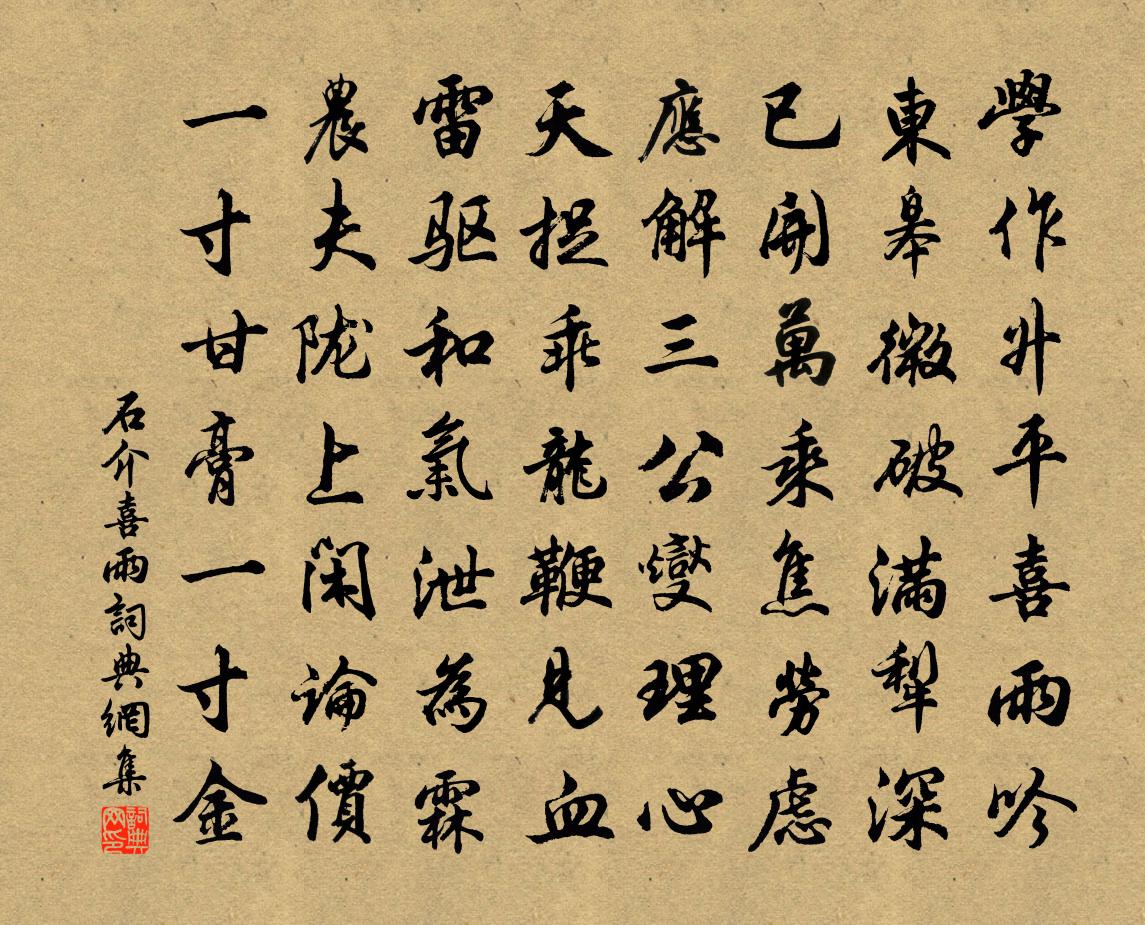 學作升平喜雨吟
東皋微破滿犁深
已開萬乘焦勞慮
應解三公燮理心
天捉乖龍鞭見血
雷驱和氣泄為霖
農夫陇上閑論價
一寸甘膏一寸金
石介喜雨詞典網集
詞典网印